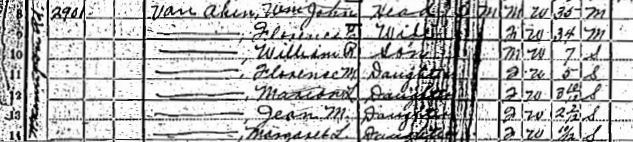 8 2901 Van Aken, Wm John Head M M W 35 M
9 ———, Florence E. Wife F W 34 M
10 ———, William R. Son M W 7 S
11 ———, Florense M. Daughter F W 5 S
12 ———, Marion L. Daughter F W 3 10/12 S
13 ———, Jean M. Daughter F W 2 2/12 S
14 ———, Margaret L. Daughter F W /12 S